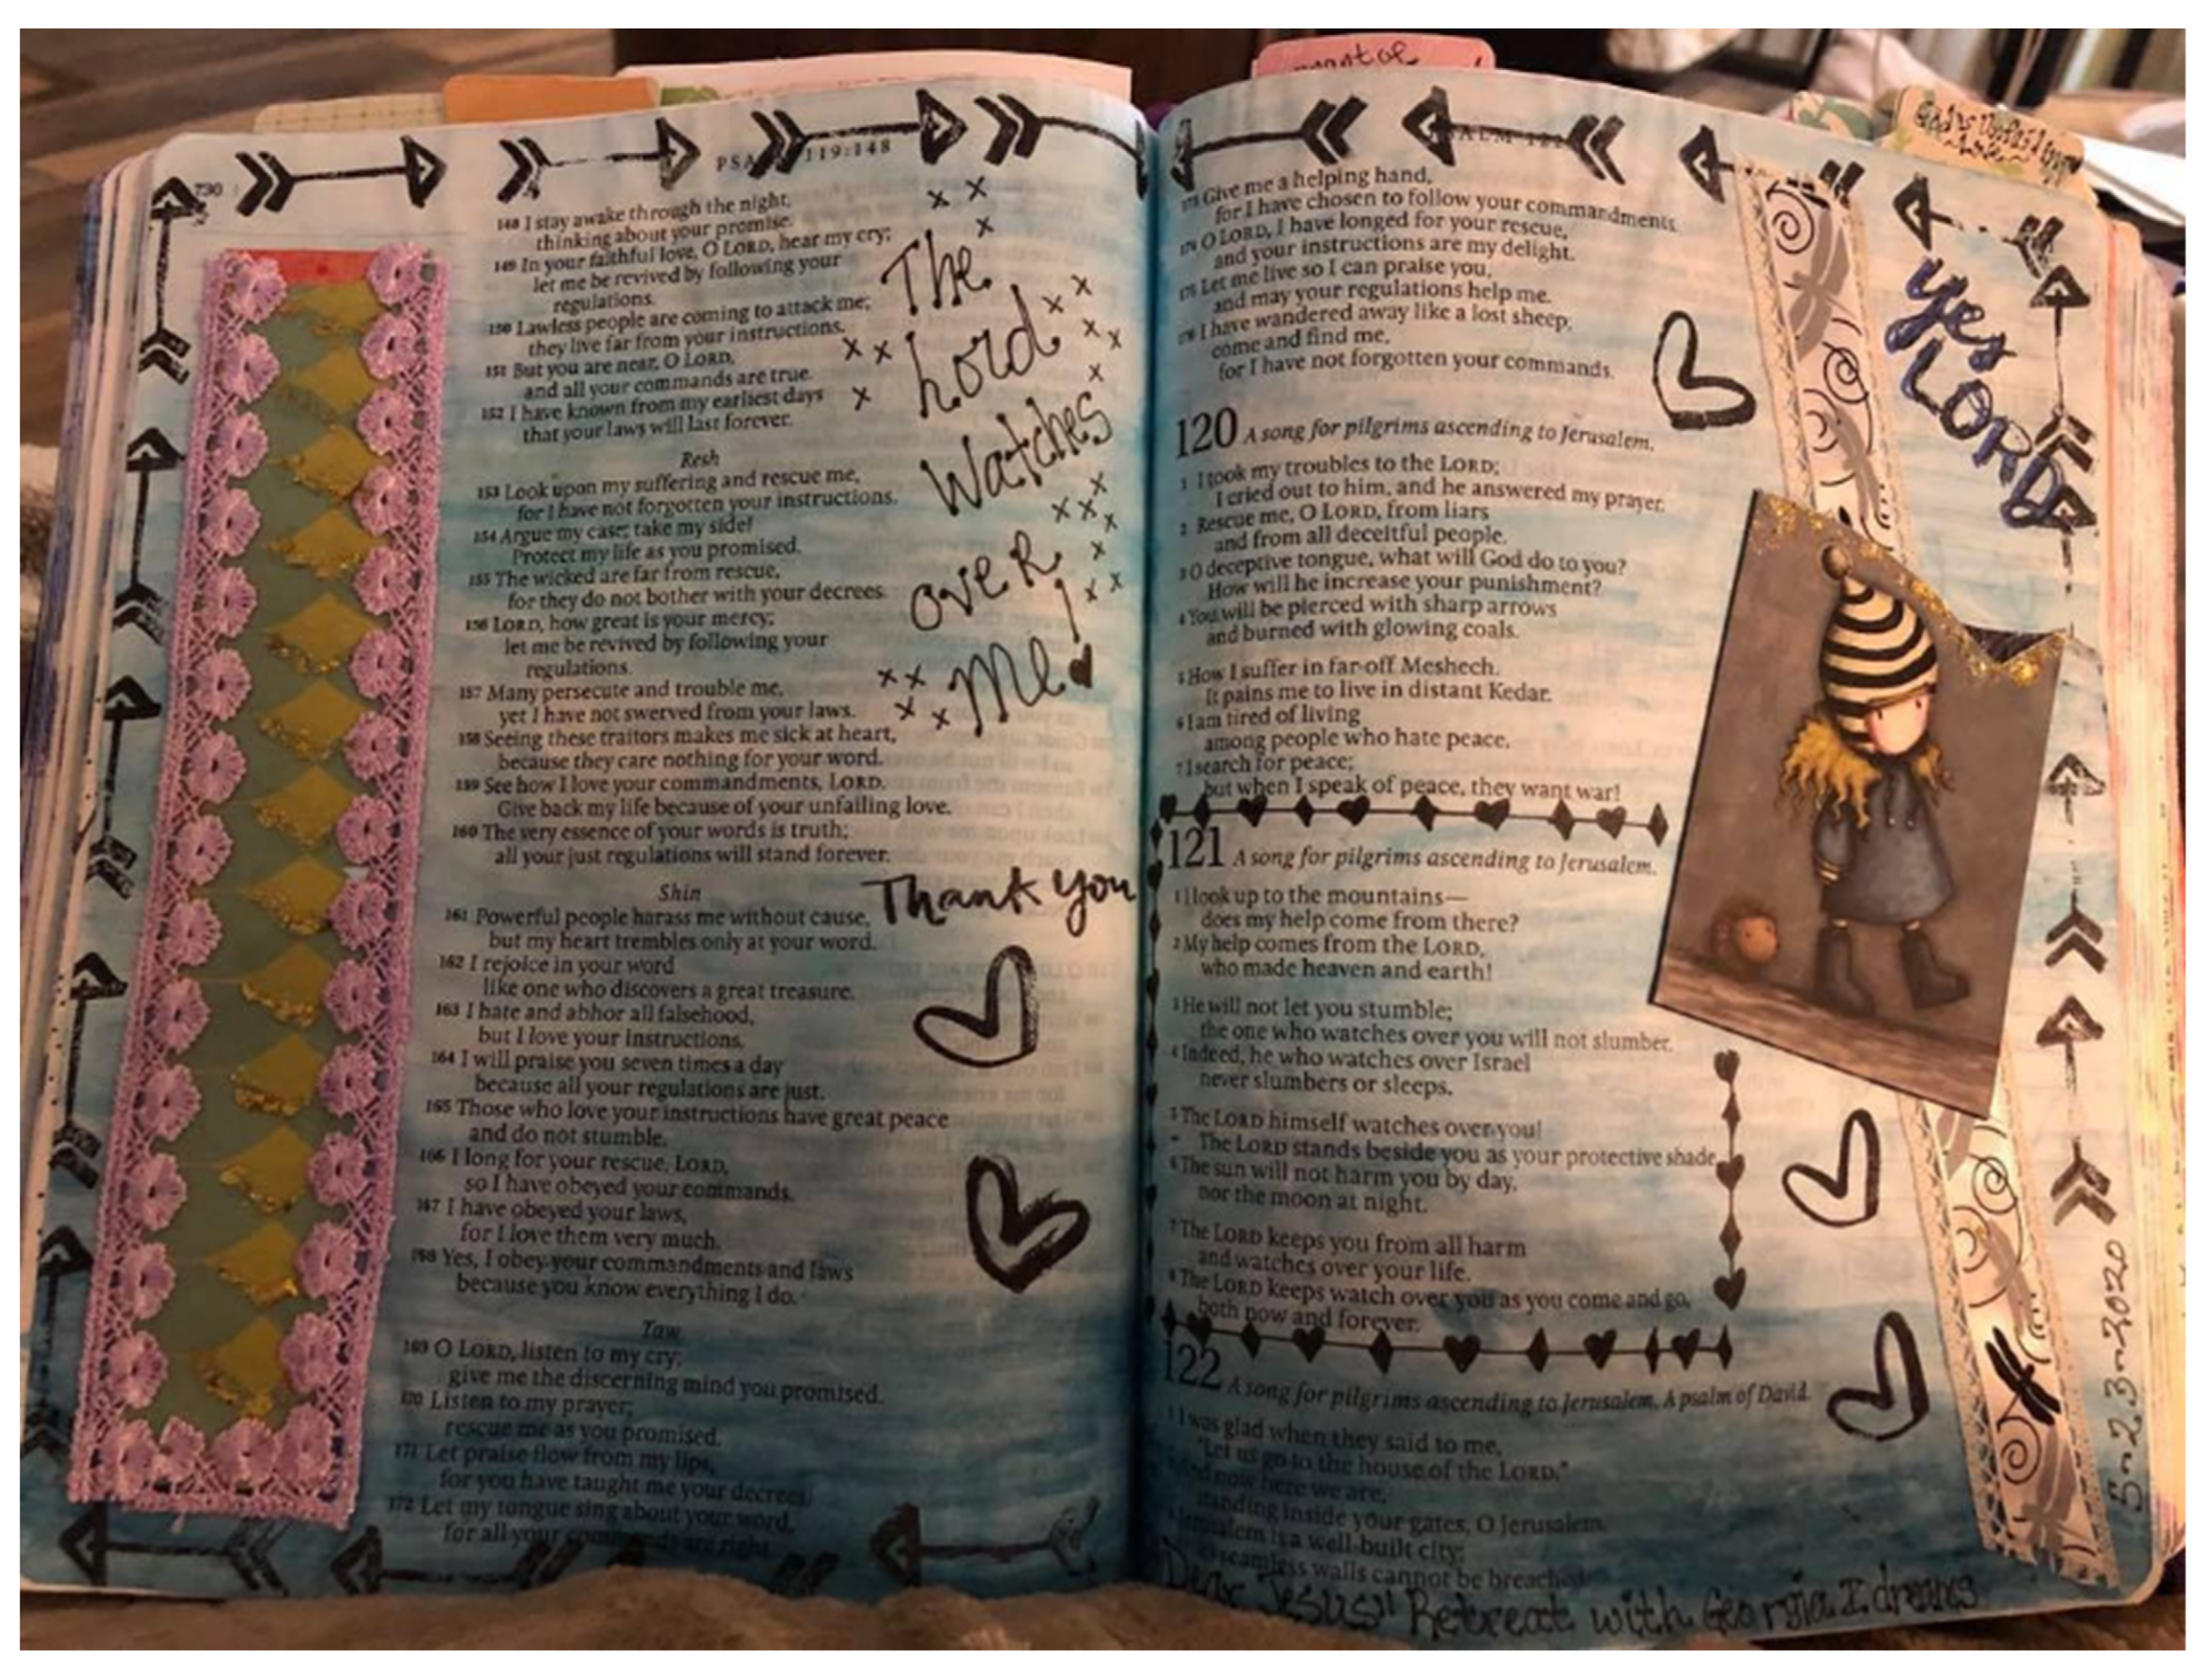 730
119:148
148 I stay awake through the night,
thinking about your promise.
149 In your faithful love, O LORD, hear my cry;
let me be revived by following your
regulations.
150 Lawless people are coming to attack me;
they live far from your instructions.
151 But you are near, O LORD,
and all your commands are true.
152 I have known from my earliest days
that your laws will last forever.
Resh
153 Look upon my suffering and rescue me,
for I have not forgotten your instructions.
154 Argue my case; take my side!
Protect my life as you promised.
155 The wicked are far from rescue,
for they do not bother with your decrees.
156 LORD, how great is your mercy;
let me be revived by following your
regulations.
157 Many persecute and trouble me,
yet I have not swerved from your laws.
158 Seeing these traitors makes me sick at heart,
because they care nothing for your word.
159 See how I love your commandments, LORD.
Give back my life because of your unfailing love.
160 The very essence of your words is truth;
all your just regulations will stand forever.
Shin
161 Powerful people harass me without cause,
but my heart trembles only at your word.
162 I rejoice in your word
like one who discovers a great treasure.
163 I hate and abhor all falsehood,
but I love your instructions.
164 I will praise you seven times a day
because all your regulations are just.
165 Those who love your instructions have great peace
and do not stumble.
166 I long for your rescue, LORD,
so I have obeyed your commands.
167 I have obeyed your laws,
for I love them very much.
168 Yes, I obey your commandments and laws
because you know everything I do.
Taw
169 O LORD, listen to my cry;
give me the discerning mind you promised.
170 Listen to my prayer;
rescue me as you promised.
171 Let praise flow from my lips,
for you have taught me your decrees.
172 Let my tongue sing about your word,
for all your commands are right.
The
Lord
Watches
over
me!
Thank you
173 Give me a helping hand,
for I have chosen to follow your commandments.
174 O LORD, I have longed for your rescue,
and your instructions are my delight.
175 Let me live so I can praise you,
and may your regulations help me.
176 I have wandered away like a lost sheep;
come and find me,
for I have not forgotten your commands.
120 A song for pilgrims ascending to Jerusalem.
1 I took my troubles to the LORD;
I cried out to him, and he answered my prayer.
2 Rescue me, O LORD, from liars
and from all deceitful people.
3 O deceptive tongue, what will God do to you?
How will he increase your punishment?
4 You will be pierced with sharp arrows
and burned with glowing coals.
5 How I suffer in far-off Meshech.
It pains me to live in distant Kedar.
6 I am tired of living
among people who hate peace.
7 I search for peace;
but when I speak of peace, they want war!
121 A song for pilgrims ascending to Jerusalem.
1 I look up to the mountains—
does my help come from there?
2 My help comes from the LORD,
who made heaven and earth!
3 He will not let you stumble;
the one who watches over you will not slumber.
4 Indeed, he who watches over Israel
never slumbers or sleeps.
5 The LORD himself watches over you!
The LORD stands beside you as your protective shade.
6 The sun will not harm you by day,
nor the moon at night.
7 The LORD keeps you from all harm
and watches over your life.
8 The LORD keeps watch over you as you come and go,
both now and forever.
122 A song for pilgrims ascending to Jerusalem. A psalm of David.
1 I was glad when they said to me,
"Let us go to the house of the LORD."
And now here we are,
standing inside your gates, O Jerusalem.
Jerusalem is a well-built city;
seamless walls cannot be breached.
yes
LORD
5-23-2020
Dear Jesus" Retreat with Georgia